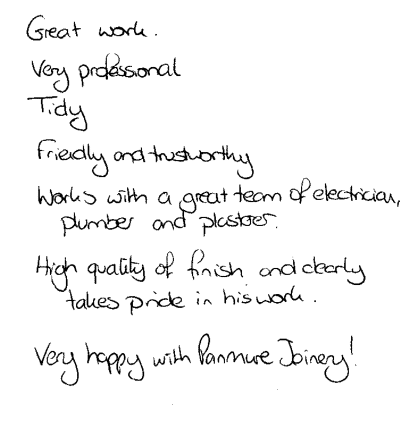 Great work.
Very professional
Tidy
Friendly and trustworthy
Works with a great team of electrician,
plumber and plasterer.
High quality of finish and clearly
takes pride in his work.
Very happy with Panmure Joinery!